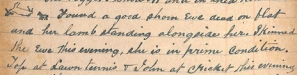 Found a good shorn Ewe dead on flat
and her lamb standing alongside her. Skinned
the Ewe this evening, she is in prime condition.
Top at Lawn tennis & John at Cricket this evening